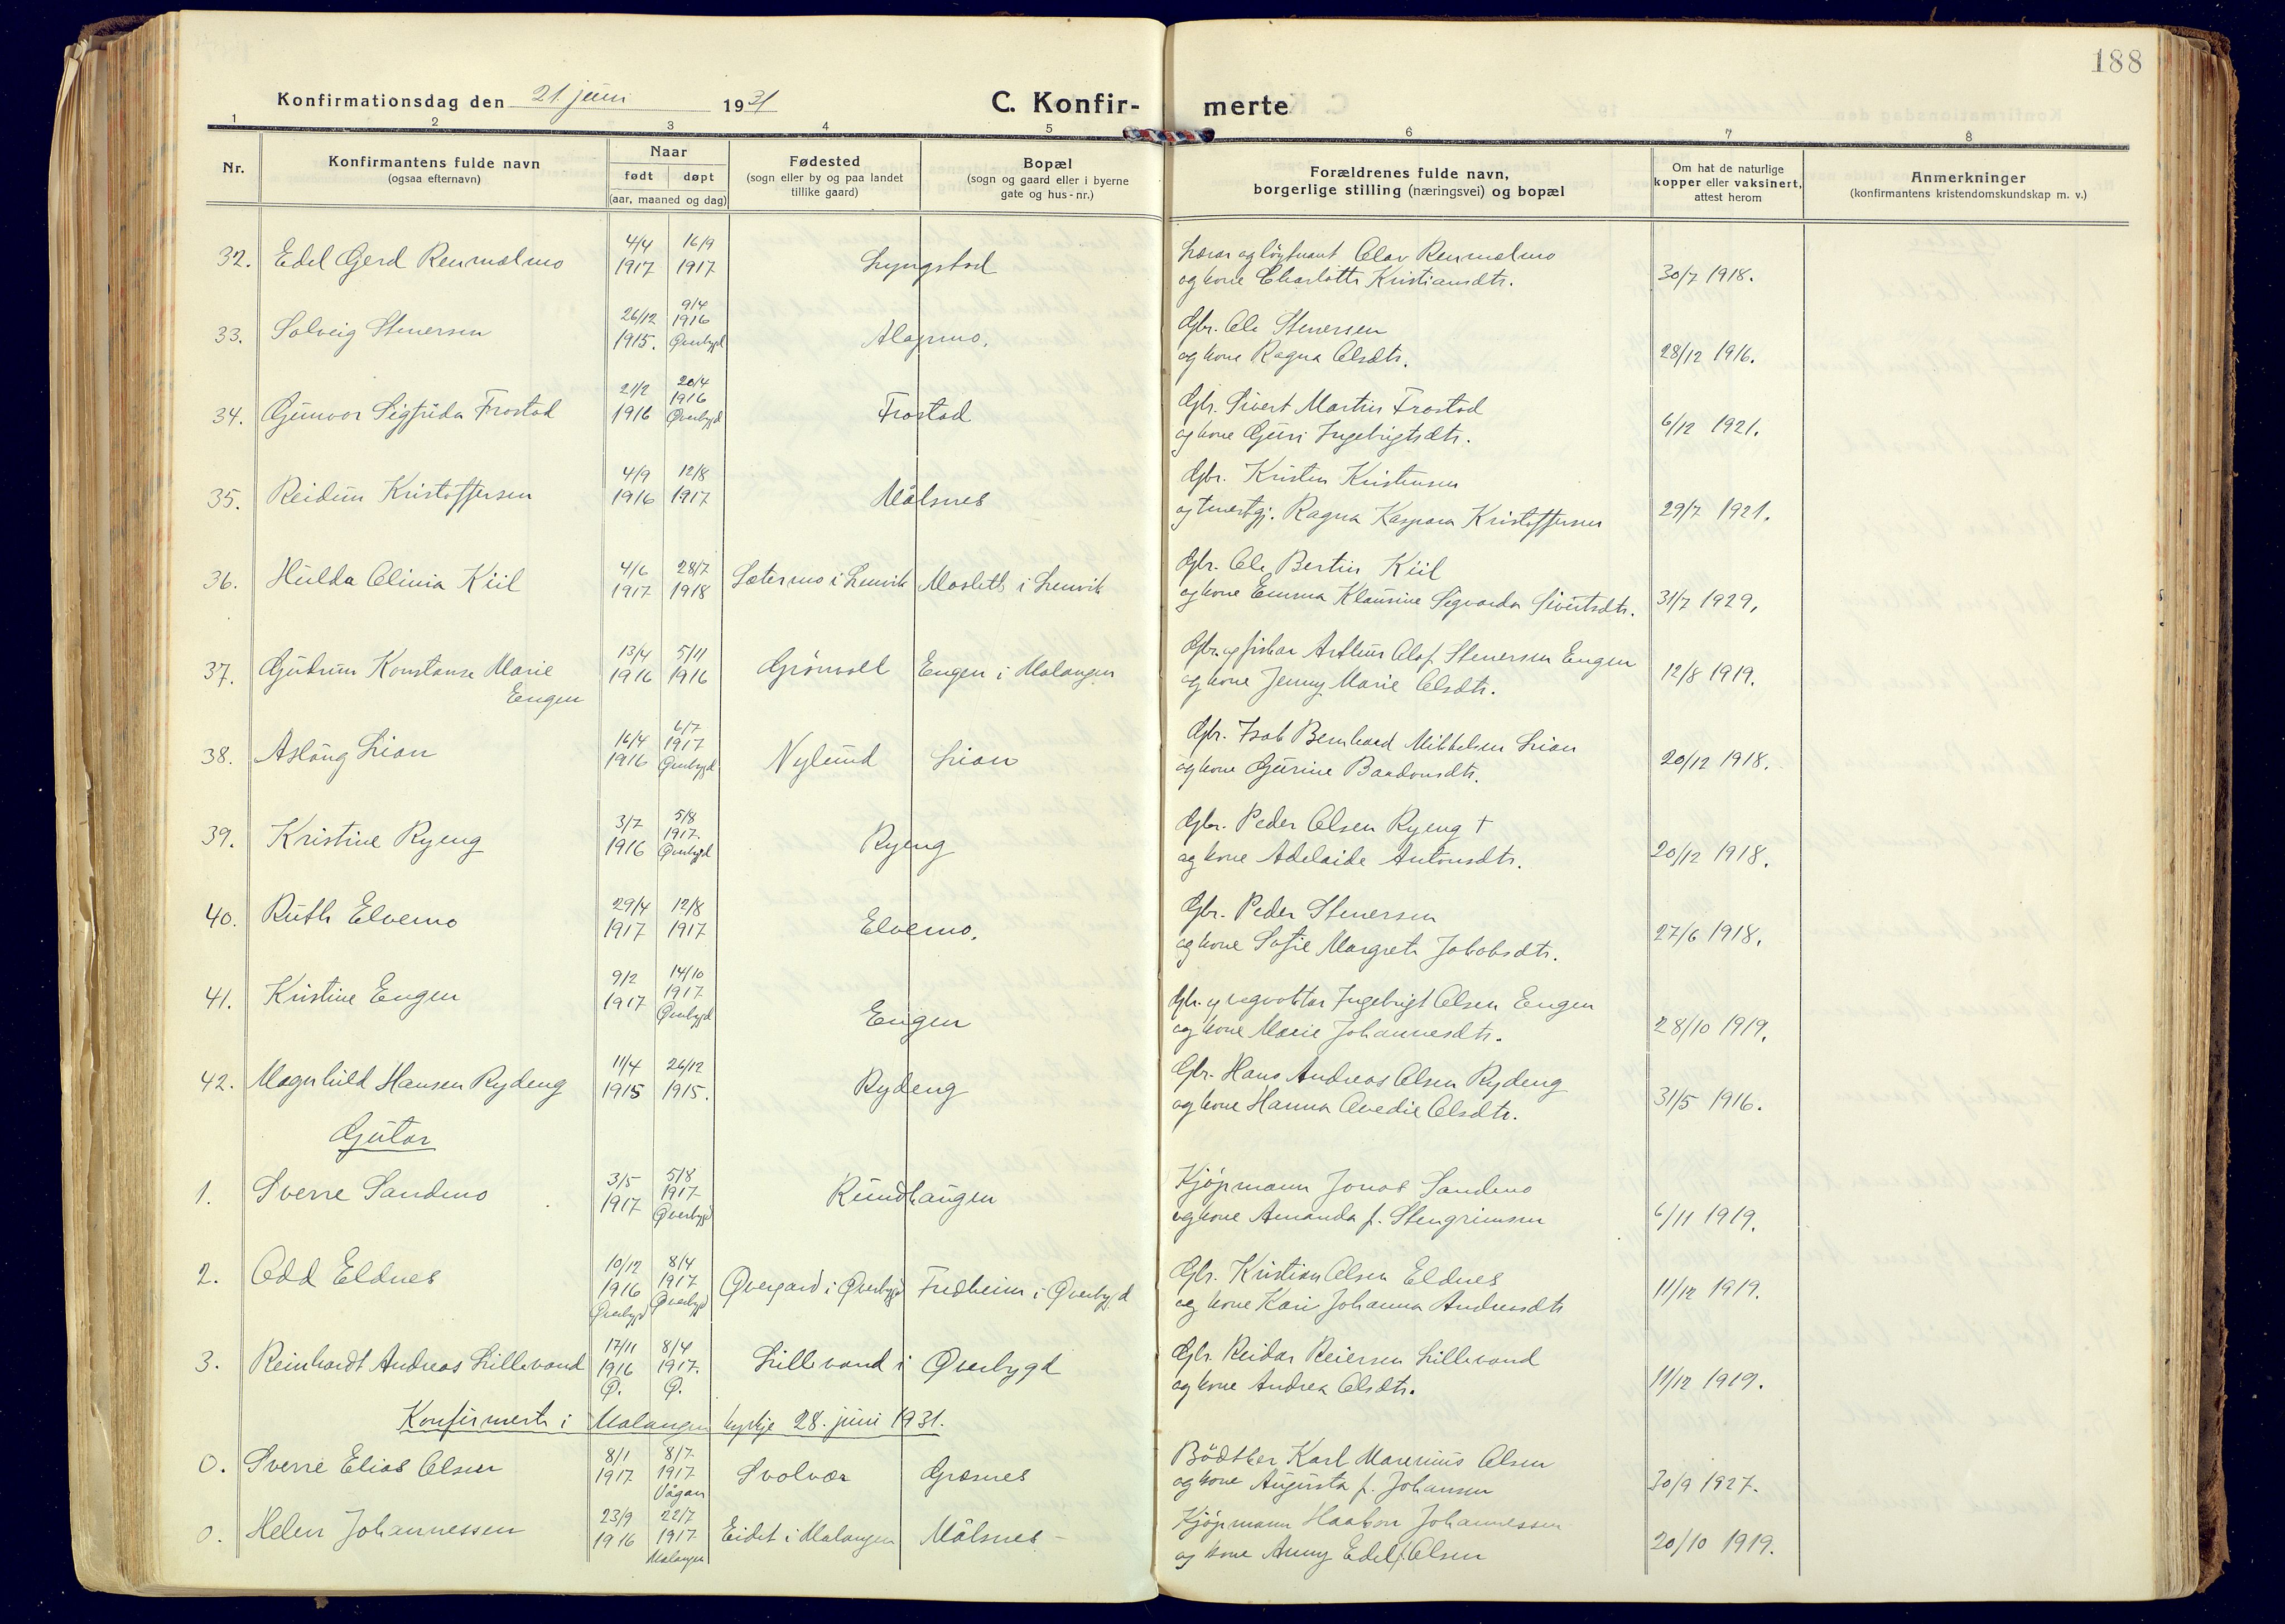 188
Konfirmationsdag den 21. juni 1931 C. Konfir- merte
1 2 3 4 5 6 7 8
Nr.
Konfirmantens fulde navn
(ogsaa efternavn)
Naar
født døpt
(aar, maaned og dag)
Fødested
(sogn eller by og paa landet
tillike gaard)
Bopæl
(sogn og gaard eller i byerne
gate og hus-nr.)
Forældrenes fulde navn,
borgerlige stilling (næringsvei) og bopæl
Om hat de naturlige
kopper eller vaksinert,
attest herom
Anmerkninger
(konfirmantens kristendomskundskap m. v.)
32. Edel Gjerd Renmælmo 4/4 1917 16/9 1917 Lyngstad
Lærar og løytnant Olav Renmælmo
og kone Charlotte Kristiansdtr. 30/7 1918.
33. Solveig Stenersen 26/12 1915. 9/4 1916 Øverbygd Alapmo.
Gbr. Ole Stenersen
og kone Ragna Olsdtr. 28/12 1916.
34. Gunvor Sigfrida Frostad 21/2 1916 20/4 1916 Øverbygd Frostad
Gbr. Sivert Martin Frostad
og kone Guri Ingebrigtsdtr. 6/12 1921.
35. Reidun Kristoffersen 4/9 1916 12/8 1917 Målsnes
Gbr. Kristen Kristensen
og tenestgj. Ragna Kaspara Kristoffersen 29/7 1921.
36. Hulda Olinia Kiil 4/6 1917 28/7 1918 Sætermo i Lenvik Mosleth i Lenvik
Gbr. Ole Bertin Kiil
og kone Emma Klausine Sigvarda Sivertsdtr. 31/7 1929.
37. Gudrun Konstanse Marie
Engen 13/4 1916 5/11 1916 Grönvoll Engen i Malangen
Gbr. og fiskar Arthur Olaf Stenersen Engen
og kone Jenny Marie Olsdtr. 12/8 1919.
38. Aslaug Lian 16/4 1916 6/7 1917 Øverbygd Nylund Lian
Gbr. Isak Bernhard Mikkelsen Lian
og kone Gurine Baardonsdtr. 20/12 1918.
39. Kristine Ryeng 3/7 1916 5/8 1917. Øverbygd Ryeng
Gbr. Peder Olsen Ryeng †
og kone Adelaide Antonsdtr. 20/12 1918.
40. Ruth Elvemo 29/4 1917 12/8 1917 Elvemo.
Gbr. Peder Stenersen
og kone Sofie Margrete Jakobsdtr. 27/6 1918.
41. Kristine Engen 9/2 1917 14/10 1917 Øverbygd Engen
Gbr. og vegvoktar Ingebrigt Olsen Engen
og kone Marie Johannesdtr. 28/10 1919.
42. Magnhild Hansen Rydeng 11/4 1915 26/12 1915. Rydeng
Gbr. Hans Andreas Olsen Rydeng
og kone Hanna Ovedie Olsdtr. 31/5 1916.
Gutar
1. Sverre Sandmo 3/5 1917 5/8 1917 Øverbygd Rundhaugen
Kjøpmann Jonas Sandmo
og kone Amanda f. Stengrimsen 6/11 1919.
2. Odd Eldnes 10/12 1916 Øverbygd 8/4 1917 Øverbygd Øvergard i Øverbygd Fredheim i Øverbygd
Gbr. Kristian Olsen Eldnes
og kone Kari Johanna Andreasdtr 11/12 1919.
3. Reinhardt Andreas Lillevand 17/11 1916 Ø. 8/4 1917. Ø. Lillevand i Øverbygd
Gbr. Reidar Reiersen Lillevand
og kone Andrea Olsdtr. 11/12 1919.
Konfirmert i Malangen kyrkje 28. juni 1931.
0. Sverre Elias Olsen 8/1 1917 8/7 1917 Vågan Svolvær Græsnes
Bödtker Karl Marenius Olsen
og kone Augusta f. Johansen 30/9 1927.
0. Helen Johannessen 23/9 1916 22/7 1917 Malangen Eidet i Malangen Målsnes
Kjøpmann Haakon Johannessen
og kone Anny Edel f. Olsen 20/10 1919.